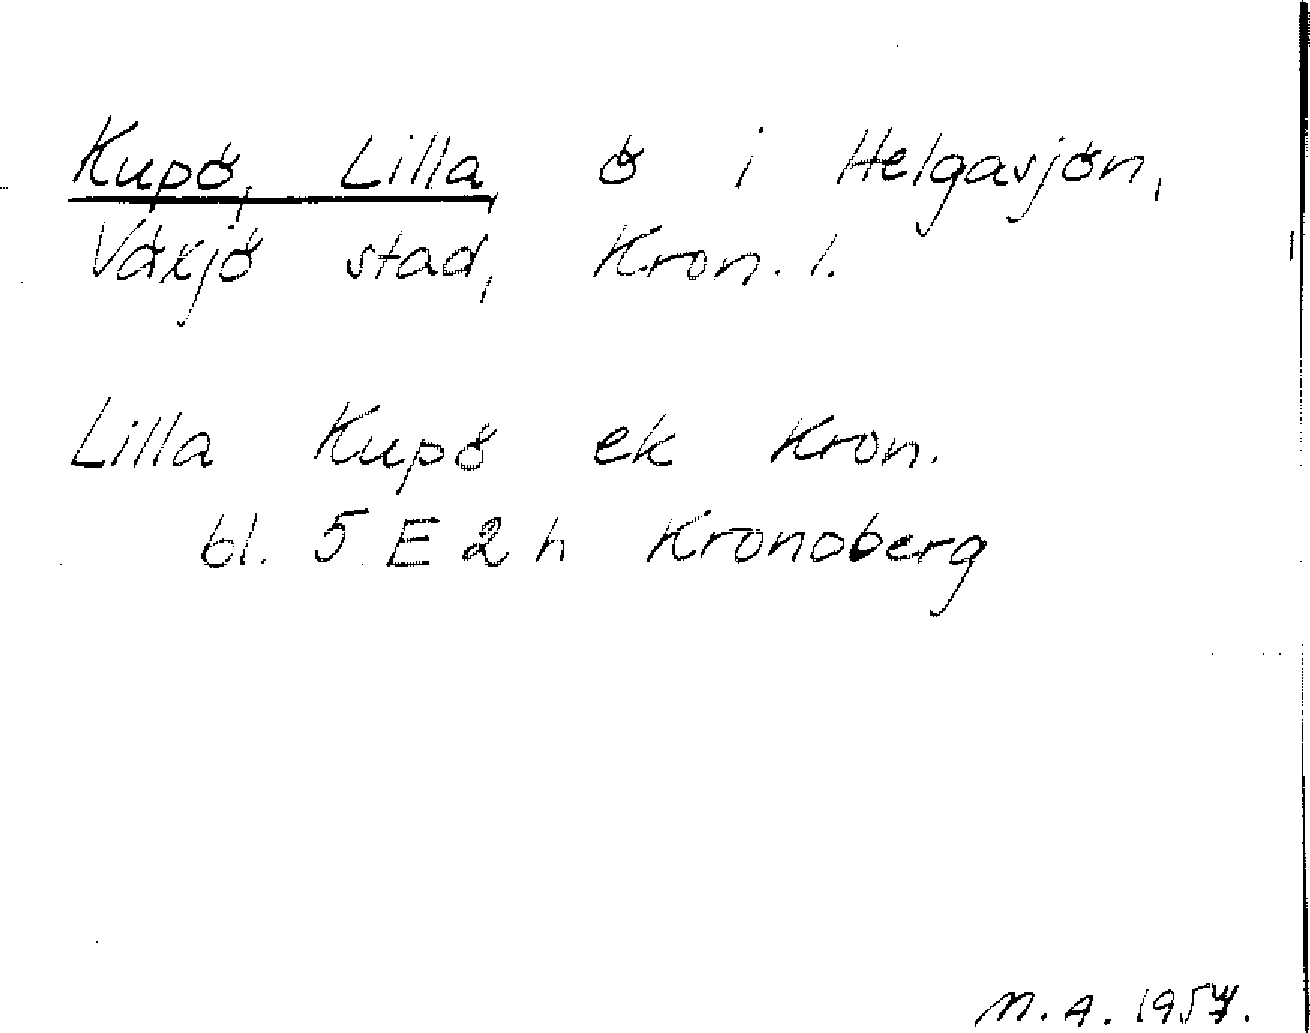 Kupö, Lilla, ö i Helgasjön,
Växjö stad, Kron. l.
Lilla Kupö ek Kron.
bl. 5 E 2 h Kronoberg
N. A. 1957.